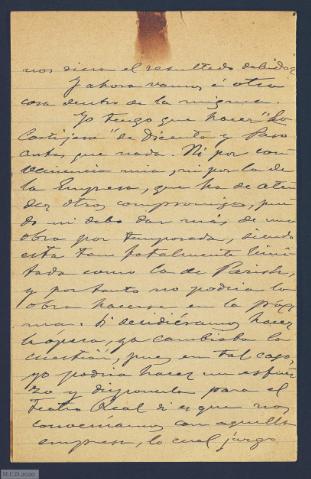 nos diera el resultado debido.
Y ahora vamos á otra
cosa dentro de la misma.
Yo tengo que hacer "La
Cortijera" de Dicenta y Paso
antes que nada. Ni por con-
veniencia mia, ni por la de
la Empresa, que ha de aten-
der otros compromisos, pue-
do ni debo dar más de una
obra por temporada, siendo
esta tan fatalmente limi-
tada como la de Parish,
y por tanto no podria la
obra hacerse en la próxi-
ma. Si decidiéramos hacer
la ópera, ya cambiaba la
cuestión, pues en tal caso,
yo podria hacer un esfuer-
zo y disponerla para el
Teatro Real si es que nos
conveniamos con aquella
empresa, lo cual juzgo